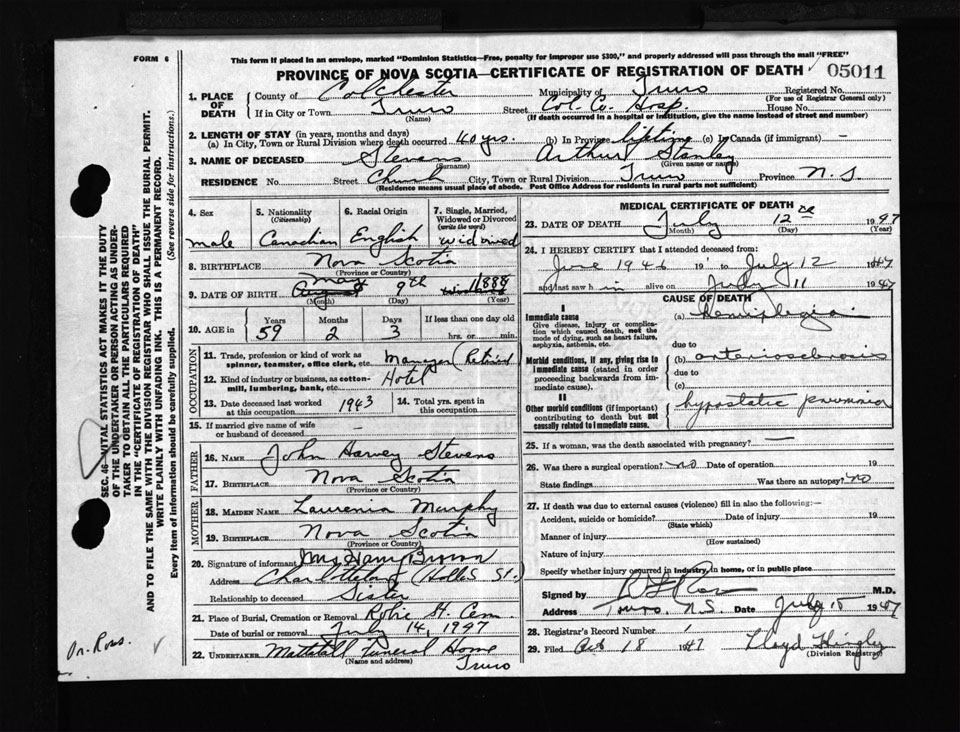 FORM 6
This form if placed in an envelope, marked "Dominion Statistics—Free, penalty for improper use $300," and properly addressed will pass through the mail "FREE"
PROVINCE OF NOVA SCOTIA—CERTIFICATE OF REGISTRATION OF DEATH 05011
1. PLACE OF DEATH
County of Colchester Municipality of Truro Registered No.
(For use of Registrar General only)
If in City or Town Truro Street Col. Co. Hosp. House No.
(Name) (If death occurred in a hospital or institution, give the name instead of street and number)
2. LENGTH OF STAY (in years, months and days)
(a) In City, Town or Rural Division where death occurred 40 yrs. (b) In Province lifetime (c) In Canada (if immigrant) —
3. NAME OF DECEASED Stevens Arthur Stanley
(Surname) (Given name or names)
RESIDENCE No. Street Church City, Town or Rural Division Truro Province N.S.
(Residence means usual place of abode. Post Office Address for residents in rural parts not sufficient)
4. Sex
male
5. Nationality (Citizenship)
Canadian
6. Racial Origin
English
7. Single, Married, Widowed or Divorced (write the word)
widowed
8. BIRTHPLACE Nova Scotia
(Province or Country)
May
9. DATE OF BIRTH August 9th 1888
(Month) (Day) (Year)
10. AGE in Years Months Days If less than one day old
59 2 3 hrs. or min.
OCCUPATION
11. Trade, profession or kind of work as spinner, teamster, office clerk, etc. Manager (Retired
12. Kind of industry or business, as cotton-mill, lumbering, bank, etc. Hotel
13. Date deceased last worked at this occupation 1943
14. Total yrs. spent in this occupation
15. If married give name of wife or husband of deceased —
FATHER
16. NAME John Harvey Stevens
17. BIRTHPLACE Nova Scotia
(Province or Country)
MOTHER
18. MAIDEN NAME Laurenia Murphy
19. BIRTHPLACE Nova Scotia
(Province or Country)
20. Signature of informant Mrs Harry Brown
Address Charlottetown (Hollis St.)
Relationship to deceased Sister
21. Place of Burial, Cremation or Removal Robie St. Cem.
Date of burial or removal July 14, 1947
22. UNDERTAKER Mattatall Funeral Home
(Name and address) Truro
MEDICAL CERTIFICATE OF DEATH
23. DATE OF DEATH July 12 1947
(Month) (Day) (Year)
24. I HEREBY CERTIFY that I attended deceased from:
June 1946 19 to July 12 1947
and last saw h im alive on July 11 1947
CAUSE OF DEATH
I
Immediate cause
Give disease, injury or complication which caused death, not the mode of dying, such as heart failure, asphyxia, asthenia, etc.
(a) Hemiplegia
due to
Morbid conditions, if any, giving rise to immediate cause (stated in order proceeding backwards from immediate cause).
(b) arteriosclerosis
due to
(c)
II
Other morbid conditions (if important) contributing to death but not causally related to immediate cause.
hypostatic pneumonia
25. If a woman, was the death associated with pregnancy? —
26. Was there a surgical operation? no Date of operation 19
State findings Was there an autopsy? no
27. If death was due to external causes (violence) fill in also the following:—
Accident, suicide or homicide? Date of injury 19
(State which)
Manner of injury
(How sustained)
Nature of injury
Specify whether injury occurred in industry, in home, or in public place
Signed by Ross M.D.
Address Truro. N.S. Date July 15 1947
28. Registrar's Record Number
29. Filed 18 1947 Lloyd
(Division Registrar)
SEC. 46—VITAL STATISTICS ACT MAKES IT THE DUTY
OF THE UNDERTAKER OR PERSON ACTING AS UNDER-
TAKER TO OBTAIN ALL THE PARTICULARS REQUIRED
IN THE "CERTIFICATE OF REGISTRATION OF DEATH"
AND TO FILE THE SAME WITH THE DIVISION REGISTRAR WHO SHALL ISSUE THE BURIAL PERMIT.
WRITE PLAINLY WITH UNFADING INK. THIS IS A PERMANENT RECORD.
Every item of information should be carefully supplied. (See reverse side for instructions.)
Dr. Ross.